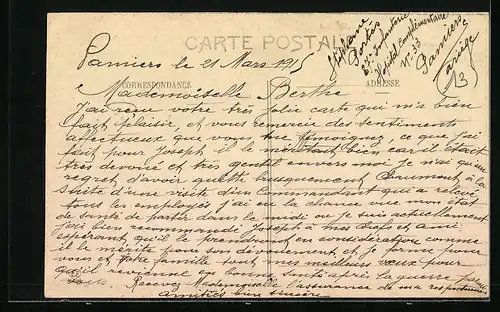 CARTE POSTALE
CORRESPONDANCE
ADRESSE
Stéphane
Portes
Infanterie
Hôpital Complémentaire
N° 33
Pamiers
Ariège
Pamiers le 21 Mars 1915
Mademoiselle Berthe
J'ai reçu votre très jolie carte qui m'a bien
fait plaisir, et vous remercie des sentiments
affectueux que vous me témoignez, ce que j'ai
fait pour Joseph il le méritait bien car il était
très dévoué et très gentil envers moi je n'ai qu'un
regret d'avoir quitté brusquement Chaumont à la
suite d'une visite d'un Commandant qui a relevé
tous les employés j'ai eu la chance vue mon état
de santé de partir dans le midi ou je suis actuellement
J'ai bien recommandé Joseph à mes chefs et ami
espérant qu'il le prendront en considération comme
il le mérite pour son dévouement et je forme pour
vous et votre famille tout mes meilleurs vœux pour
qu'il revienne en bonne santé après la guerre
Recevez Mademoiselle l'assurance de ma respectueuse
amitiés bien sincère